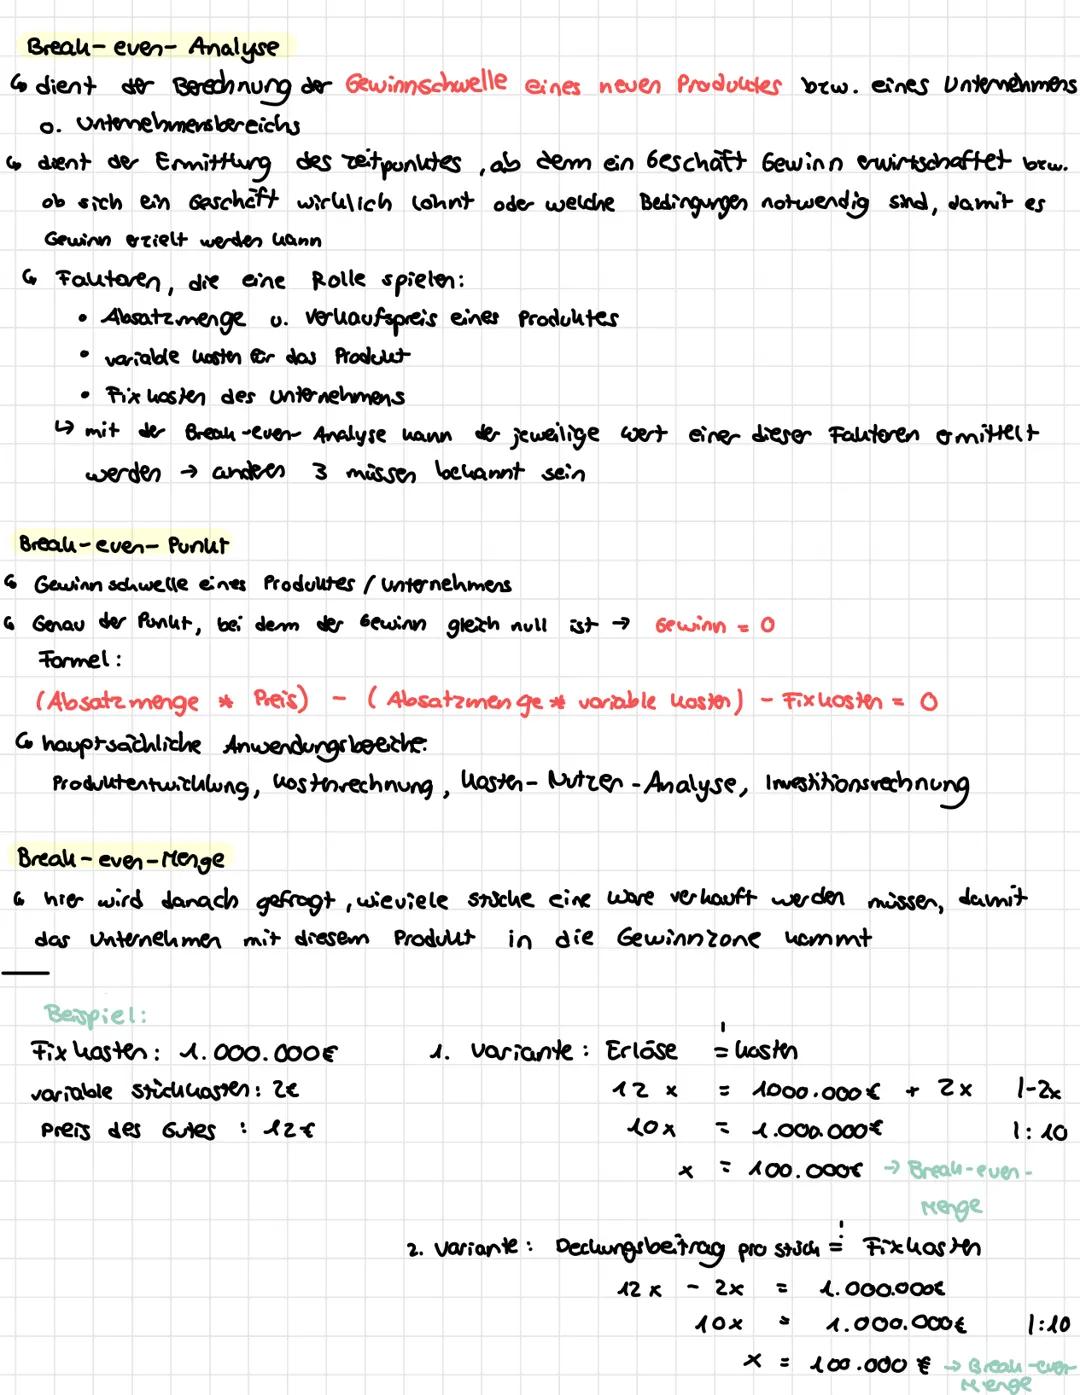 Break-even-Analyse
↳ dient der Berechnung der Gewinnschwelle eines neuen Produktes bzw. eines Unternehmens
o. Unternehmensbereichs
↳ dient der Ermittlung des Zeitpunktes, ab dem ein Geschäft Gewinn erwirtschaftet bzw.
ob sich ein Geschäft wirklich lohnt oder welche Bedingungen notwendig sind, damit es
Gewinn erzielt werden kann
↳ Faktoren, die eine Rolle spielen:
• Absatzmenge u. Verkaufspreis eines Produktes
• variable Kosten für das Produkt
• Fixkosten des Unternehmens
↳ mit der Break-even-Analyse kann der jeweilige Wert einer dieser Faktoren ermittelt
werden → anderen 3 müssen bekannt sein
Break-even-Punkt
↳ Gewinnschwelle eines Produktes / Unternehmens
↳ Genau der Punkt, bei dem der Gewinn gleich null ist → Gewinn = 0
Formel:
(Absatzmenge * Preis) - (Absatzmenge * variable Kosten) - Fixkosten = 0
↳ hauptsächliche Anwendungsbereiche:
Produktentwicklung, Kostenrechnung, Kosten-Nutzen-Analyse, Investitionsrechnung
Break-even-Menge
↳ hier wird danach gefragt, wieviele Stücke eine Ware verkauft werden müssen, damit
das Unternehmen mit diesem Produkt in die Gewinnzone kommt
Beispiel:
Fixkosten: 1.000.000€
variable Stückkosten: 2€
Preis des Gutes: 12€
1. Variante: Erlöse != Kosten
12x = 1000.000€ + 2x |-2x
10x = 1.000.000€ |:10
x = 100.000€ → Break-even-
Menge
2. Variante: Deckungsbeitrag pro Stück != Fixkosten
12x - 2x = 1.000.000€
10x = 1.000.000€ |:10
x = 100.000 € → Break-even-
Menge